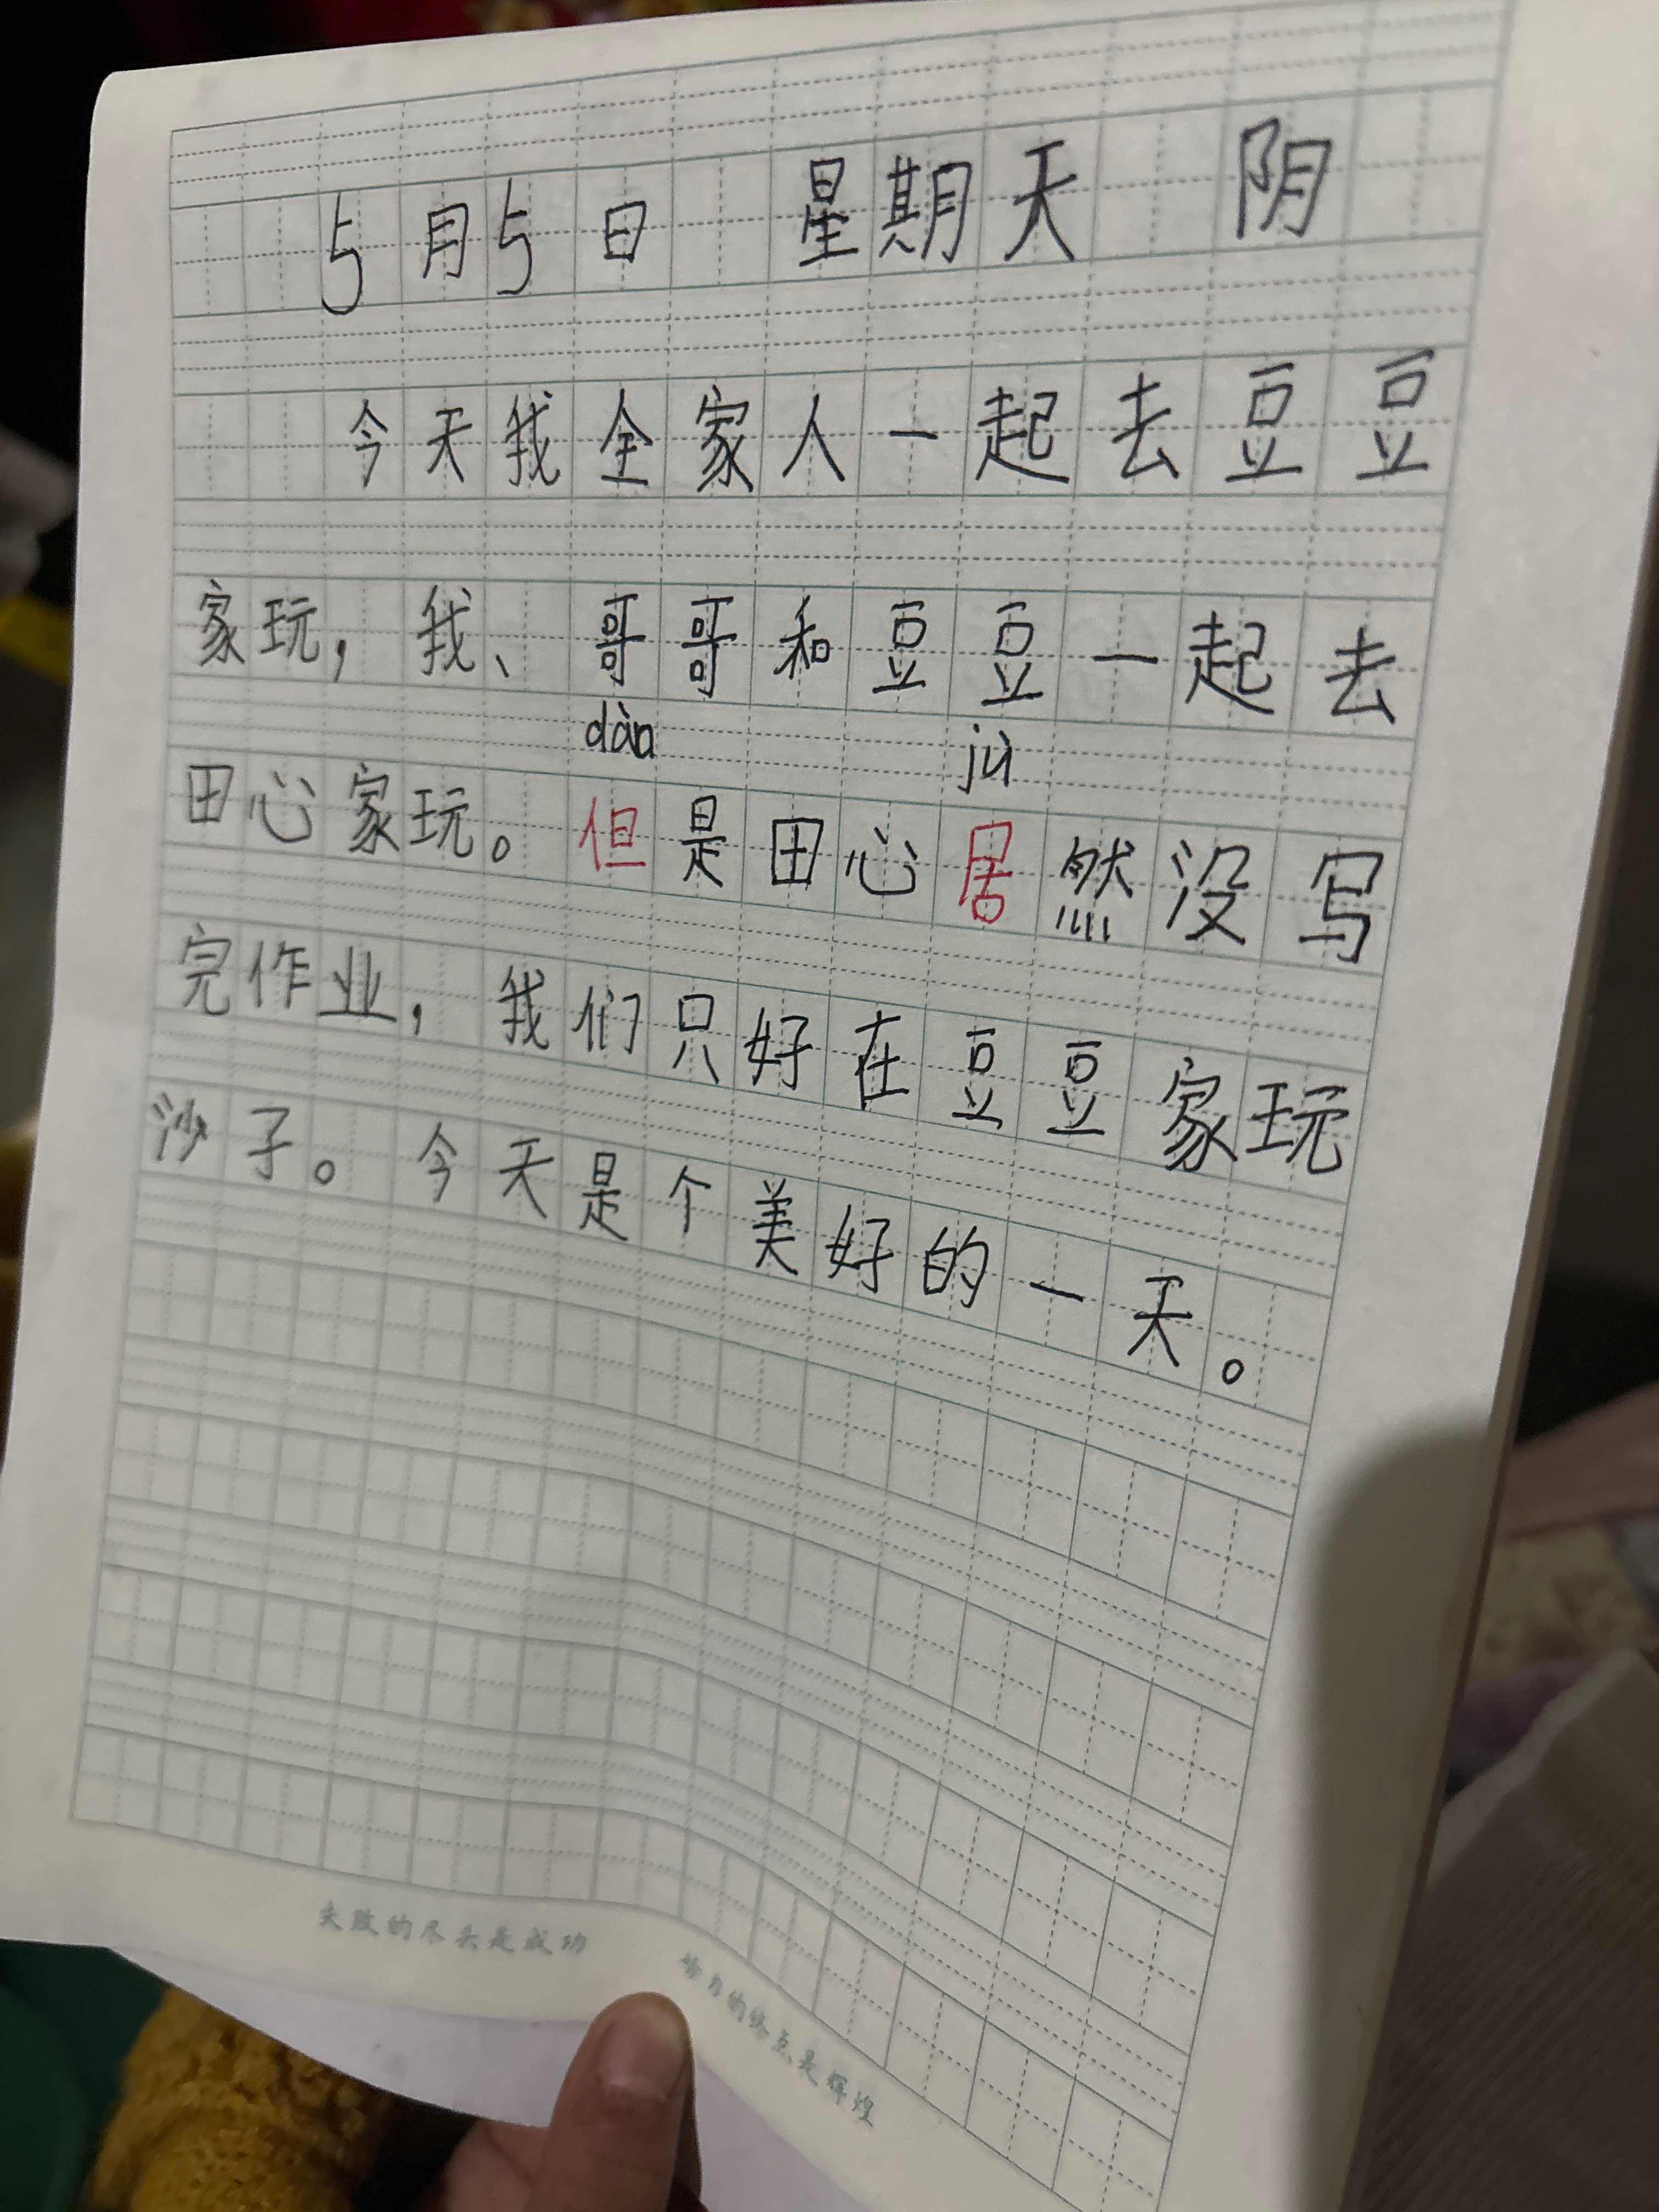 5月5日 星期天 阴
今天我全家人一起去豆豆
家玩，我、哥哥和豆豆一起去
dàn jū
田心家玩。但是田心居然没写
完作业，我们只好在豆豆家玩
沙子。今天是个美好的一天。
失败的尽头是成功 努力的终点是辉煌